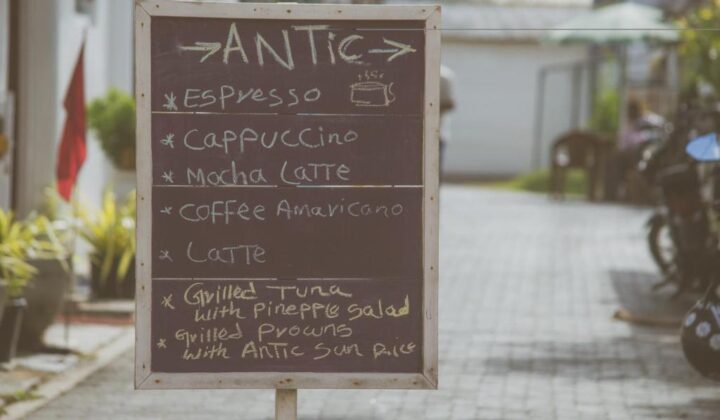 →ANTiC→
* Espresso
* Cappuccino
* Mocha Latte
* Coffee Amaricano
* Latte
* Grilled Tuna
with Pinepple Salad
* Grilled Prowns
with ANTic Sun